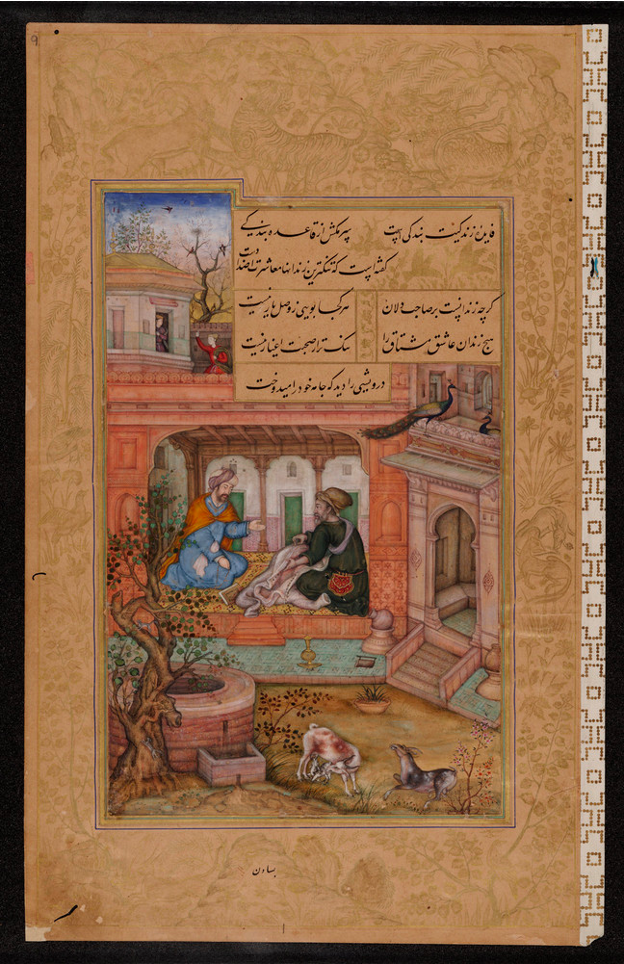 زندگیت بندگی است سر مکش از قاعده بندگی
گفته است که تنگترین زندانها معاشرت اضداد است
گرچه زندانیست بر صاحب دلان هر کجا بویی ز وصل یار نیست
هیچ زندان عاشق مشتاق را تنگ تر از صحبت اغیار نیست
درویشی را دید که جامه خود را میدوخت
بساون